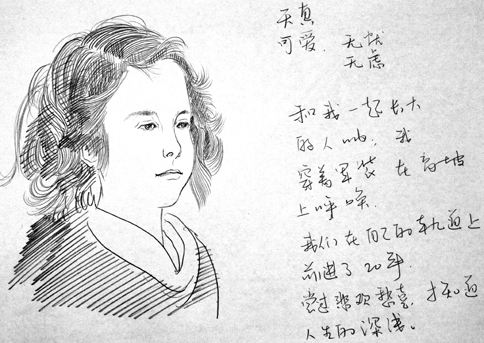 天真
可爱. 无忧
无虑
和我一起长大
的人呦. 我
穿着军装在高坡
上呼唤.
我们在自己的轨道上
前进了20年.
尝过悲欢愁喜. 才知道
人生的深浅。